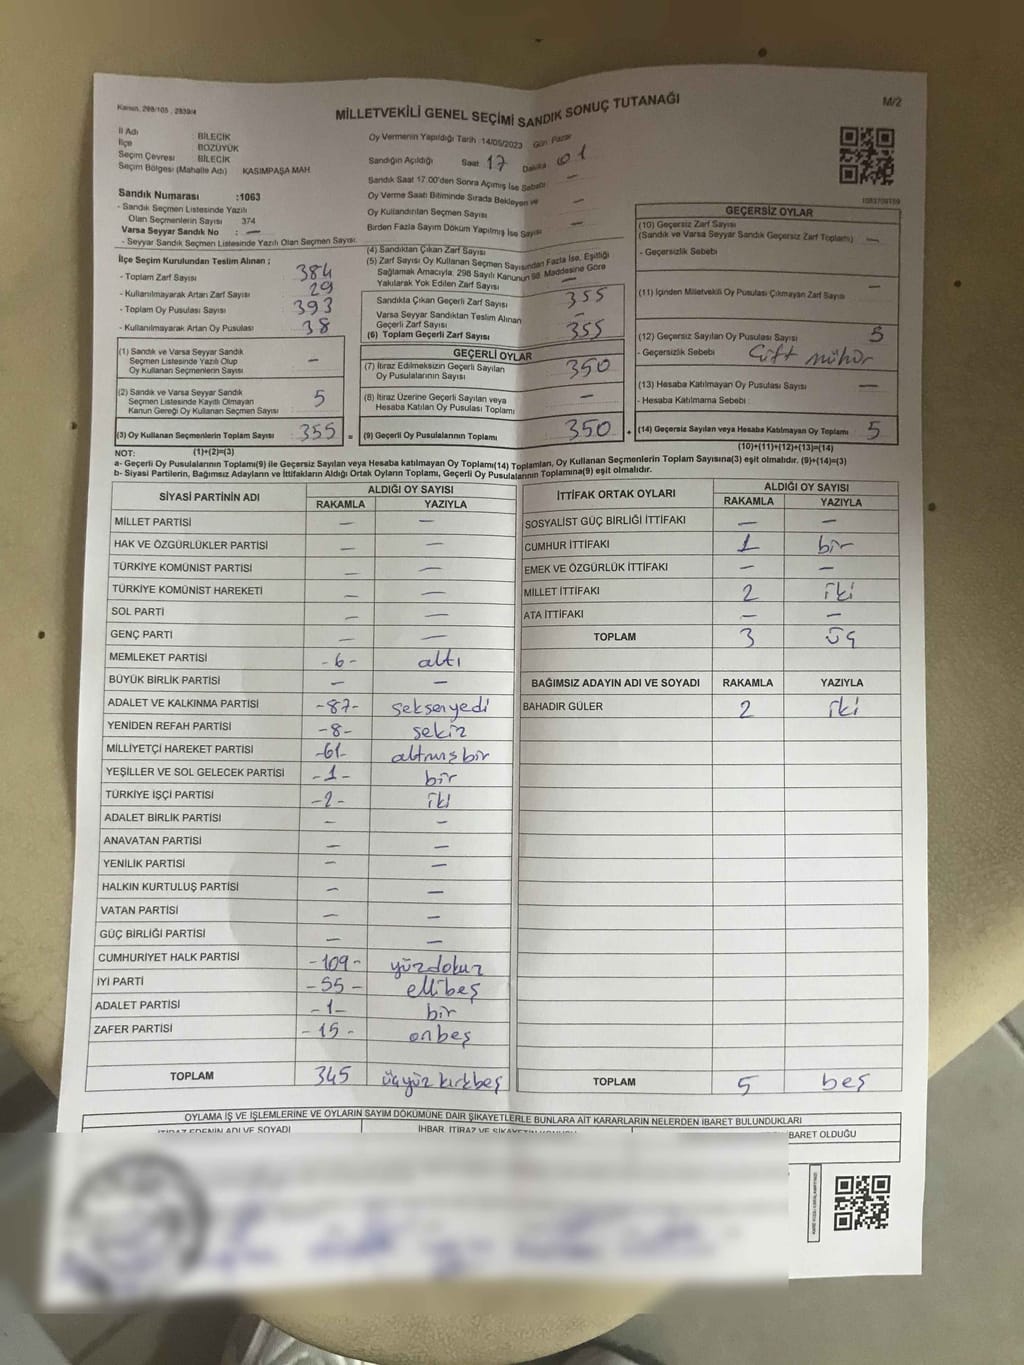 Kanun, 298/105 , 2839/4
MİLLETVEKİLİ GENEL SEÇİMİ SANDIK SONUÇ TUTANAĞI
M/2
İl Adı : BİLECİK
İlçe : BOZÜYÜK
Seçim Çevresi : BİLECİK
Seçim Bölgesi (Mahalle Adı) KASIMPAŞA MAH
Oy Vermenin Yapıldığı Tarih :14/05/2023 Gün Pazar
Sandığın Açıldığı Saat 17 Dakika 01
Sandık Saat 17.00'den Sonra Açımış İse Sebebi —
Oy Verme Saati Bitiminde Sırada Bekleyen ve
Oy Kullandırılan Seçmen Sayısı —
Birden Fazla Sayım Döküm Yapılmış İse Sayısı —
Sandık Numarası :1063
- Sandık Seçmen Listesinde Yazılı
Olan Seçmenlerin Sayısı 374
Varsa Seyyar Sandık No : —
- Seyyar Sandık Seçmen Listesinde Yazılı Olan Seçmen Sayısı:
İlçe Seçim Kurulundan Teslim Alınan ;
- Toplam Zarf Sayısı 384
- Kullanılmayarak Artan Zarf Sayısı 29
- Toplam Oy Pusulası Sayısı 393
- Kullanılmayarak Artan Oy Pusulası 38
(4) Sandıktan Çıkan Zarf Sayısı
(5) Zarf Sayısı Oy Kullanan Seçmen Sayısından Fazla İse, Eşitliği
Sağlamak Amacıyla; 298 Sayılı Kanunun 98. Maddesine Göre
Yakılarak Yok Edilen Zarf Sayısı —
Sandıkta Çıkan Geçerli Zarf Sayısı 355
Varsa Seyyar Sandıktan Teslim Alınan
Geçerli Zarf Sayısı —
(6) Toplam Geçerli Zarf Sayısı 355
(1) Sandık ve Varsa Seyyar Sandık
Seçmen Listesinde Yazılı Olup
Oy Kullanan Seçmenlerin Sayısı —
(2) Sandık ve Varsa Seyyar Sandık
Seçmen Listesinde Kayıtlı Olmayan
Kanun Gereği Oy Kullanan Seçmen Sayısı 5
(3) Oy Kullanan Seçmenlerin Toplam Sayısı 355 =
GEÇERLİ OYLAR
(7) İtiraz Edilmeksizin Geçerli Sayılan
Oy Pusulalarının Sayısı 350
(8) İtiraz Üzerine Geçerli Sayılan veya
Hesaba Katılan Oy Pusulası Toplamı —
(9) Geçerli Oy Pusulalarının Toplamı 350 +
GEÇERSİZ OYLAR
(10) Geçersiz Zarf Sayısı
(Sandık ve Varsa Seyyar Sandık Geçersiz Zarf Toplamı) —
- Geçersizlik Sebebi
(11) İçinden Milletvekili Oy Pusulası Çıkmayan Zarf Sayısı —
(12) Geçersiz Sayılan Oy Pusulası Sayısı 5
- Geçersizlik Sebebi Çift mühür
(13) Hesaba Katılmayan Oy Pusulası Sayısı —
- Hesaba Katılmama Sebebi :
(14) Geçersiz Sayılan veya Hesaba Katılmayan Oy Toplamı 5
NOT: (1)+(2)=(3) (10)+(11)+(12)+(13)=(14)
a- Geçerli Oy Pusulalarının Toplamı(9) ile Geçersiz Sayılan veya Hesaba katılmayan Oy Toplamı(14) Toplamları, Oy Kullanan Seçmenlerin Toplam Sayısına(3) eşit olmalıdır. (9)+(14)=(3)
b- Siyasi Partilerin, Bağımsız Adayların ve İttifakların Aldığı Ortak Oyların Toplamı, Geçerli Oy Pusulalarının Toplamına(9) eşit olmalıdır.
SİYASİ PARTİNİN ADI ALDIĞI OY SAYISI
RAKAMLA YAZIYLA
MİLLET PARTİSİ — —
HAK VE ÖZGÜRLÜKLER PARTİSİ — —
TÜRKİYE KOMÜNİST PARTİSİ — —
TÜRKİYE KOMÜNİST HAREKETİ — —
SOL PARTİ — —
GENÇ PARTİ — —
MEMLEKET PARTİSİ -6- altı
BÜYÜK BİRLİK PARTİSİ — —
ADALET VE KALKINMA PARTİSİ -87- seksenyedi
YENİDEN REFAH PARTİSİ -8- sekiz
MİLLİYETÇİ HAREKET PARTİSİ -61- altmışbir
YEŞİLLER VE SOL GELECEK PARTİSİ -1- bir
TÜRKİYE İŞÇİ PARTİSİ -2- iki
ADALET BİRLİK PARTİSİ — —
ANAVATAN PARTİSİ — —
YENİLİK PARTİSİ — —
HALKIN KURTULUŞ PARTİSİ — —
VATAN PARTİSİ — —
GÜÇ BİRLİĞİ PARTİSİ — —
CUMHURİYET HALK PARTİSİ -109- yüzdokuz
İYİ PARTİ -55- ellibeş
ADALET PARTİSİ -1- bir
ZAFER PARTİSİ -15- onbeş
TOPLAM 345 üçyüzkırkbeş
İTTİFAK ORTAK OYLARI ALDIĞI OY SAYISI
RAKAMLA YAZIYLA
SOSYALİST GÜÇ BİRLİĞİ İTTİFAKI — —
CUMHUR İTTİFAKI 1 bir
EMEK VE ÖZGÜRLÜK İTTİFAKI — —
MİLLET İTTİFAKI 2 iki
ATA İTTİFAKI — —
TOPLAM 3 üç
BAĞIMSIZ ADAYIN ADI VE SOYADI RAKAMLA YAZIYLA
BAHADIR GÜLER 2 iki
TOPLAM 5 beş
OYLAMA İŞ VE İŞLEMLERİNE VE OYLARIN SAYIM DÖKÜMÜNE DAİR ŞİKAYETLERLE BUNLARA AİT KARARLARIN NELERDEN İBARET BULUNDUKLARI
İTİRAZ EDENİN ADI VE SOYADI İHBAR, İTİRAZ VE ŞİKAYETİN BARET OLDUĞU